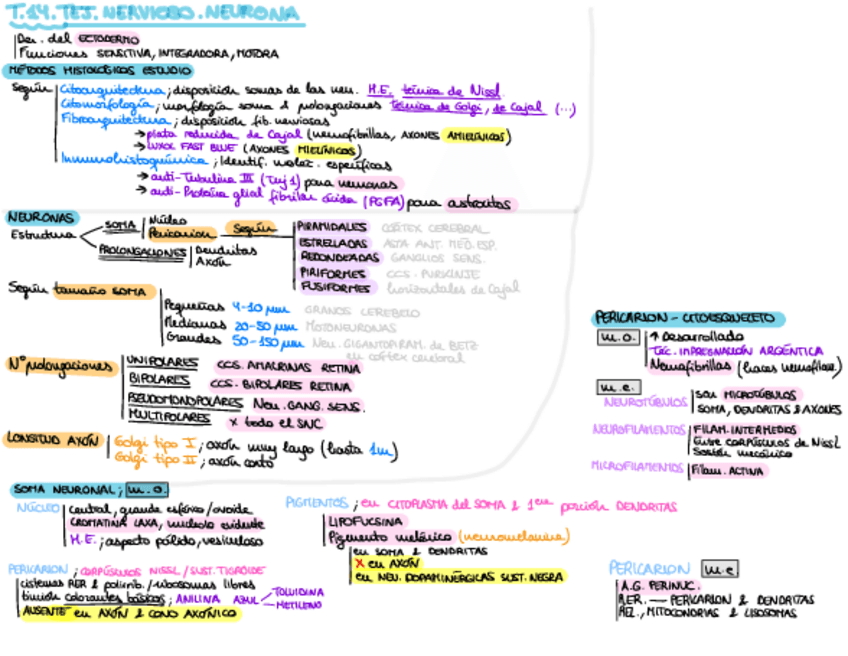 T.14. TEJ. NERVIOSO. NEURONA
Der. del ECTODERMO
Funciones SENSITIVA, INTEGRADORA, MOTORA
MÉTODOS HISTOLÓGICOS ESTUDIO
Según
Citoarquitectura; disposición somas de las neu. H.E. técnica de Nissl
Citomorfología; morfología soma & prolongaciones técnica de Golgi, de Cajal (...)
Fibroarquitectura; disposición fib. nerviosas
→ plata reducida de Cajal (neurofibrillas, AXONES AMIELÍNICOS)
→ LUXOL FAST BLUE (AXONES MIELÍNICOS)
Inmunohistoquímica; Identif. molec. específicas
→ anti-Tubulina III (Tuj1) para neuronas
→ anti-Proteína glial fibrilar ácida (PGFA) para astrocitos
NEURONAS
Estructura
SOMA
Núcleo
Pericarion
Según
PIRAMIDALES CÓRTEX CEREBRAL
ESTRELLADAS ASTA ANT. MED. ESP.
REDONDEADAS GANGLIOS SENS.
PIRIFORMES CCS. PURKINJE
FUSIFORMES horizontales de Cajal
PROLONGACIONES
Dendritas
Axón
Según tamaño SOMA
Pequeñas 4-10 μm GRANOS CEREBELO
Medianas 20-50 μm MOTONEURONAS
Grandes 50-150 μm Neu. GIGANTOPIRAM. de BETZ
en córtex cerebral
Nº prolongaciones
UNIPOLARES CCS. AMACRINAS RETINA
BIPOLARES CCS. BIPOLARES RETINA
PSEUDOMONOPOLARES Neu. GANG. SENS.
MULTIPOLARES x todo el SNC
LONGITUD AXÓN
Golgi tipo I; axón muy largo (hasta 1m)
Golgi tipo II; axón corto
PERICARION - CITOESQUELETO
m.o.
↑ Desarrollado
TÉC. IMPREGNACIÓN ARGÉNTICA
Neurofibrillas (haces neurofilam.)
m.e.
NEUROTÚBULOS
son MICROTÚBULOS
SOMA, DENDRITAS & AXONES
NEUROFILAMENTOS
FILAM. INTERMEDIOS
Entre CORPÚSCULOS de NISSL
Sostén mecánico
MICROFILAMENTOS Filam. ACTINA
SOMA NEURONAL; m.o.
NÚCLEO
central, grande esférico/ovoide
CROMATINA LAXA, nucleolo evidente
H.E.; aspecto pálido, vesiculoso
PERICARION; CORPÚSCULOS NISSL / SUST. TIGROIDE
cisternas RER & polirrib./ribosomas libres
tinción colorantes básicos; ANILINA AZUL
TOLUIDINA
METILENO
AUSENTE en AXÓN & CONO AXÓNICO
PIGMENTOS; en CITOPLASMA del SOMA & 1era porción DENDRITAS
LIPOFUCSINA
Pigmento melánico (neuromelanina)
en SOMA & DENDRITAS
X en AXÓN
en NEU. DOPAMINÉRGICAS SUST. NEGRA
PERICARION m.e
A.G. PERINUC.
RER. — PERICARION & DENDRITAS
REL, MITOCONDRIAS & LISOSOMAS